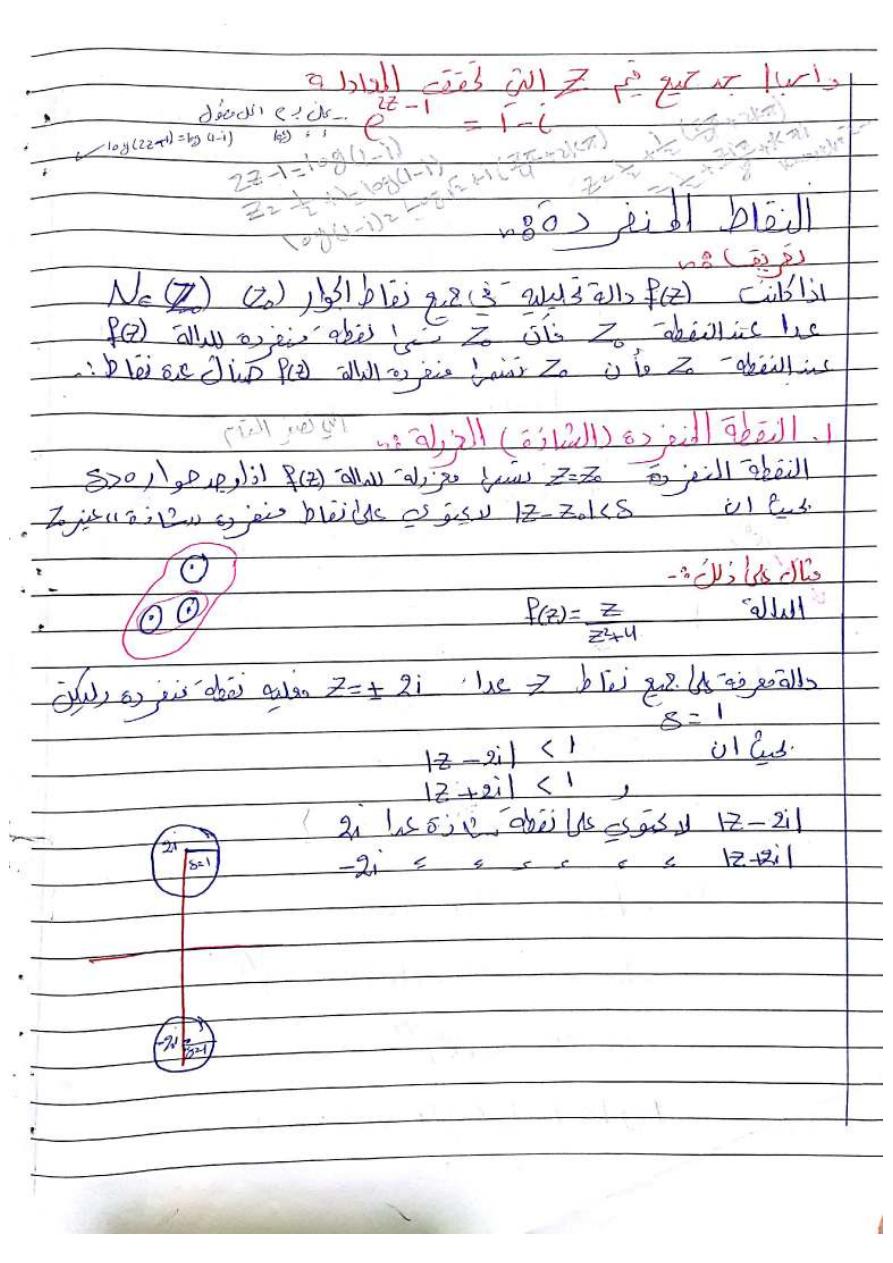 واجب/ جد جميع قيم Z التي تحقق المعادلة
e^{2z-1} = 1-i
log(2z-1) = log(1-i)
2z-1 = log(1-i)
z = 1/2 + 1/2 log(1-i)
log(1-i) = log√2 + i(7π/4 + 2kπ)
النقاط المنفردة :-
تعريف :-
اذا كانت f(z) دالة تحليلية في جميع نقاط الجوار (z₀) Nε(Z₀)
عدا عند النقطة Z₀ فأن Z₀ تسمى نقطة منفردة للدالة f(z)
عند النقطة Z₀ فأن Z₀ تسمى منفردة الدالة f(z) هناك عدة نقاط :.
1. النقطة المنفردة (الشاذة) المعزولة :- التي تصفر المقام
النقطة المنفردة Z=Z₀ تسمى معزولة للدالة f(z) اذا وجد جوار δ>0
بحيث ان |Z-Z₀|<δ لا يحتوي على نقاط منفردة "شاذة" غير Z₀
مثال على ذلك :-
الدالة f(z) = z/(z²+4)
دالة معرفة على جميع نقاط Z عدا Z=± 2i فعليه نقطة منفردة وليكن
δ=1
بحيث ان |z-2i| < 1
و |z+2i| < 1
|z-2i| لا يحتوي على نقطة شاذة عدا 2i
|z+2i| ، ، ، ، ، ، -2i
2i
δ=1
-2i
δ=1